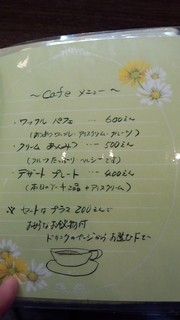 ～Cafe メニュー～
・ワッフル パフェ ― 600えん
(あつあつワッフル、アイスクリーム・フルーツ)
・クリーム あんみつ … 500えん
(フルーツたっぷり ヘルシーです)
・デザート プレート … 400えん
(本日のケーキ2品 + アイスクリーム)
※ セットは プラス 200えんで
お好きなお飲物付
ドリンクのページから お選び下さい